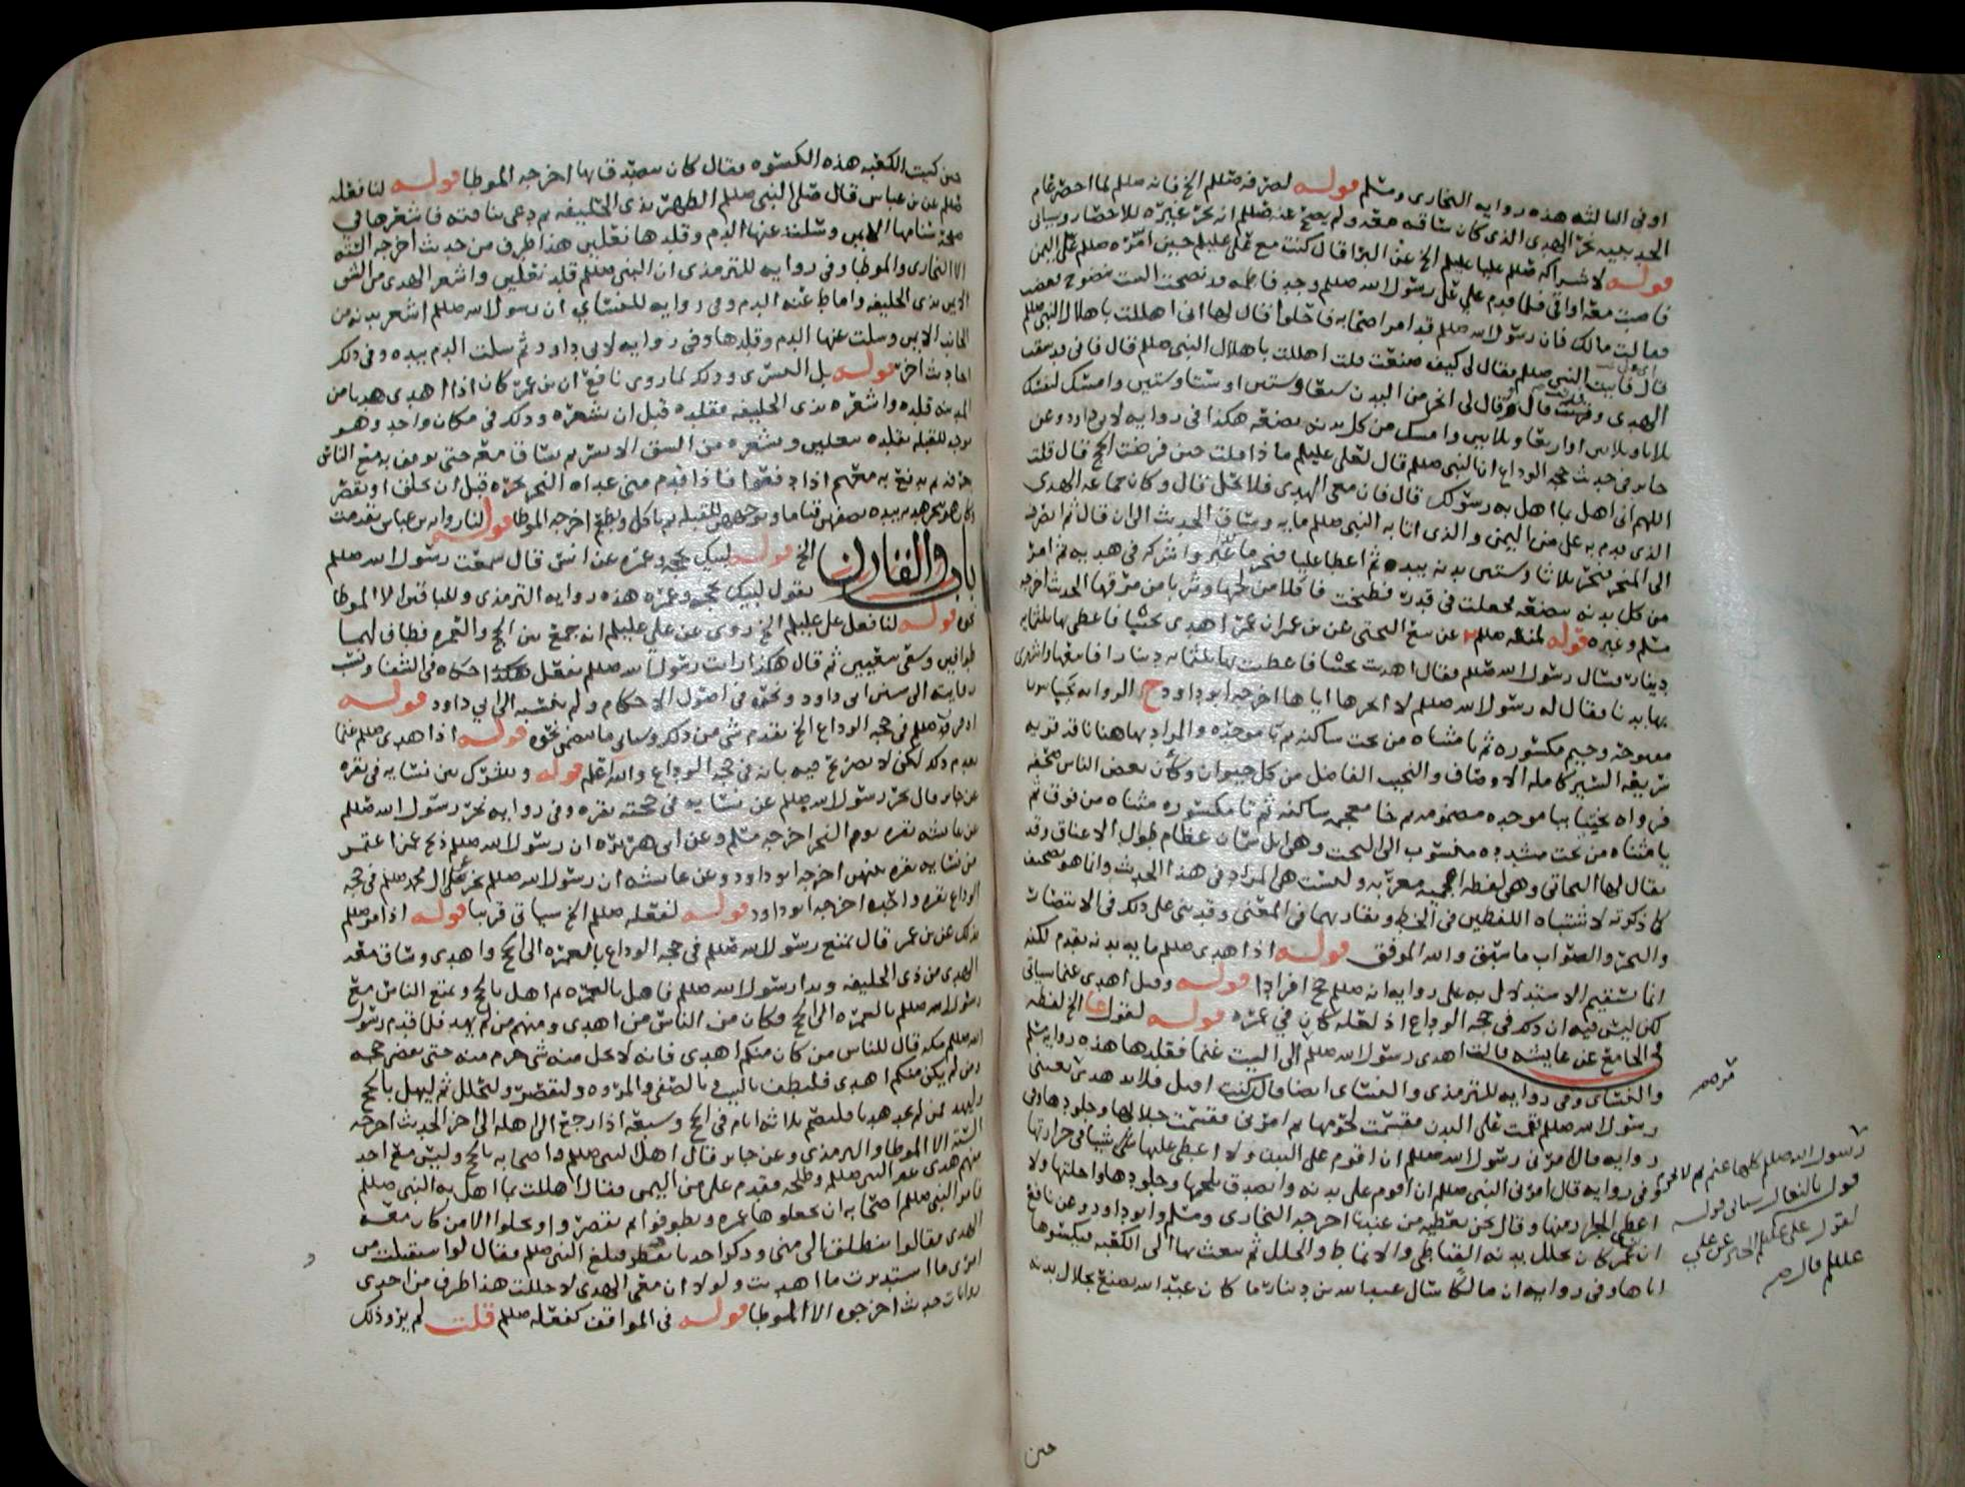 او فى الثالثه هذه روايه البخارى ومسلم قوله لصرفه صللم الخ فانه صللم لما احصر عام
الحديبيه نحر الهدى الذى كان ساقه معه ولم يصح عنه صللم انه نحر غيره للاحصار وسياتى
قوله لاشراكه صللم عليا عليلم الخ عن البرا قال كنت مع على عليلم حين امره صللم على اليمن
فاصبت معه اواقى فلما قدم على على رسول الله صللم وجد فاطمه قد نضحت البيت بنضوح
فقالت مالك فان رسول الله صللم قد امر اصحابه فاحلوا قال لها انى اهللت باهلال النبى صللم
قال فاتيت النبى صللم فقال لى كيف صنعت قلت اهللت باهلال النبى صللم قال فانى قد سقت
الهدى وقرنت قال وقال لى انحر من البدن سبعا وستين او ستا وستين وامسك لنفسك
ثلاثا وثلاثين او اربعا وثلاثين وامسك من كل بدنه بضعه هكذا فى روايه لابى داود وعن
جابر فى حديث حجه الوداع ان النبى صللم قال لعلى عليلم ماذا قلت حين فرضت الحج قال قلت
اللهم انى اهل بما اهل به رسولك قال فان معى الهدى فلا تحل قال وكان جماعه الهدى
الذى قدم به على من اليمن والذى اتا به النبى صللم مايه وساق الحديث الى ان قال ثم انصرف
الى المنحر فنحر ثلاثا وستين بدنه بيده ثم اعطا عليا فنحر ما غبر واشركه فى هديه ثم امر
من كل بدنه ببضعه فجعلت فى قدر فطبخت فاكلا من لحمها وشربا من مرقها الحديث اخرجه
مسلم وغيره قوله
دينار فسال رسول الله صللم فقال اهديت بختيا فاعطيت بها ثلثمايه دينار افابيعها واشترى
بها بدنا فقال له رسول الله صللم لا انحرها اياها اخرجه ابو داود
مفتوحه وجيم مكسوره ثم يا مثناه من تحت ساكنه ثم با موحده والمراد بها هنا ناقه قويه
سريعه السير كامله الاوصاف والنجيب الفاضل من كل حيوان وكان بعض الناس صحفه
فرواه بختيا ببا موحده مضمومه ثم خا معجمه ساكنه ثم تا مكسوره مثناه من فوق ثم
يا مثناه من تحت مشدده منسوب الى البخت وهى ابل سمان عظام طوال الاعناق وقد
يقال لها البخاتى وهى لفظه اعجميه معربه وليست هى المراد فى هذا الحديث وانما هو تصحيف
كما ذكرته لاشتباه اللفظين فى الخط وتقاربهما فى المعنى وقد بنى على ذلك فى الانتصار
والبحر والصواب ما سبق والله الموفق قوله اذ اهدى صللم مايه بدنه تقدم لكنه
انما يستقيم الاستدلال به على روايه انه صللم حج افرادا قوله وقيل اهدى غنما سياتى
لكن ليس فيه ان ذلك فى حجه الوداع اذ لعله كان فى عمره قوله لقول عا الخ لفظه
فى الجامع عن عايشه قالت اهدى رسول الله صللم الى البيت غنما فقلدها هذه روايه مسلم
رسول الله صللم فقمت على البدن فقسمت لحومها ثم امرنى فقسمت جلالها وجلودها وفى
روايه قال امرنى رسول الله صللم ان اقوم على البدن ولا اعطى عليها شيا فى جزارتها
وفى روايه قال امرنى النبى صللم ان اقوم على بدنه واتصدق بلحمها وجلودها واجلتها ولا
اعطى الجزار منها وقال نحن نعطيه من عندنا اخرجه البخارى ومسلم وابو داود وعن نافع
ان بن عمر كان يجلل بدنه القباطى والانماط والحلل ثم يبعث بها الى الكعبه فيكسوها
اياها وفى روايه ان مالكا سال عبد الله بن دينار ما كان عبد الله يصنع بجلال بدنه
حين
حين كسيت الكعبه هذه الكسوه فقال كان يتصدق بها اخرجه الموطا قوله لنا فعله
صللم عن بن عباس قال صلى النبى صللم الظهر بذى الحليفه ثم دعى بناقته فاشعرها فى
صفحة سنامها الايمن وسلت عنها الدم وقلدها نعلين هذا طرف من حديث اخرجه السته
الا البخارى والموطا وفى روايه للترمذى ان النبى صللم قلد نعلين واشعر الهدى من الشق
الايمن بذى الحليفه واماط عنه الدم وفى روايه للنسائى ان رسول الله صللم اشعر بدنه من
الجانب الايمن وسلت عنها الدم وقلدها وفى روايه لابى داود ثم سلت الدم بيده وفى ذلك
احاديث اخر قوله بل اليسرى وذلك لما روى نافع ان بن عمر كان اذا اهدى هديا من
المدينه قلده واشعره بذى الحليفه يقلده قبل ان يشعره وذلك فى مكان واحد وهو
موجه للقبله يقلده بنعلين ويشعره من الشق الايسر ثم يساق معه حتى يوقف به مع الناس
بعرفه ثم يدفع به معهم اذا دفعوا فاذا قدم منى غداه النحر نحره قبل ان يحلق او يقصر
وكان هو ينحر هديه بيده يصفهن قياما ويوجههن للقبله ثم ياكل ويطعم اخرجه الموطا قوله لنا روايه بن عباس تقدمت
باب والقارن
الخ قوله لبيك بحجه وعمره عن انس قال سمعت رسول الله صللم
يقول لبيك بحجه وعمره هذه روايه الترمذى وللباقين الا الموطا
نحوه قوله لنا فعل على عليلم الخ روى عن على عليلم انه جمع بين الحج والعمره فطاف لهما
طوافين وسعى سعيين ثم قال هكذا رايت رسول الله صللم يفعل هكذا حكاه فى الشفا ونسب
روايته الى سنن ابى داود ونحوه فى اصول الاحكام ولم ينسبه الى ابى داود قوله
اذ قرن صللم فى حجه الوداع الخ تقدم شى من ذلك وسياتى ما يتضمن نحوه قوله اذ اهدى صللم غنما
تقدم ذلك لكن لا تصريح فيه بانه فى حجه الوداع والله اعلم قوله وللشرك بين نسايه فى بقره
عن جابر قال نحر رسول الله صللم عن نسايه فى حجته بقره وفى روايه نحر رسول الله صللم
عن عايشه بقره يوم النحر اخرجه مسلم وعن ابى هريره ان رسول الله صللم ذبح عمن اعتمر
من نسايه بقره بينهن اخرجه ابو داود وعن عايشه ان رسول الله صللم نحر عن ال محمد صللم فى حجه
الوداع بقره واحده اخرجه ابو داود قوله لفعله صللم الخ سياتى قريبا قوله اذ امر صللم
بذلك عن بن عمر قال تمتع رسول الله صللم فى حجه الوداع بالعمره الى الحج واهدى وساق معه
الهدى من ذى الحليفه وبدا رسول الله صللم فاهل بالعمره ثم اهل بالحج وتمتع الناس مع
رسول الله صللم بالعمره الى الحج فكان من الناس من اهدى ومنهم من لم يهد فلما قدم رسول
الله صللم مكه قال للناس من كان منكم اهدى فانه لا يحل منه شى حرم منه حتى يقضى حجه
ومن لم يكن منكم اهدى فليطف بالبيت وبالصفى والمروه وليقصر وليحلل ثم ليهل بالحج
وليهد فمن لم يجد هديا فليصم ثلاثه ايام فى الحج وسبعه اذا رجع الى اهله الى اخر الحديث اخرجه
السته الا الموطا والترمذى وعن جابر قال اهل النبى صللم واصحابه بالحج وليس مع احد
منهم هدى غير النبى صللم وطلحه فقدم على من اليمن فقال اهللت بما اهل به النبى صللم
فامر النبى صللم اصحابه ان يجعلوها عمره ويطوفوا ثم يقصروا ويحلوا الا من كان معه
الهدى فقالوا ننطلق الى منى وذكر احدنا يقطر فبلغ النبى صللم فقال لو استقبلت من
امرى ما استدبرت ما اهديت ولولا ان معى الهدى لاحللت هذا طرف من احدى
روايات حديث اخرجوه الا الموطا قوله فى المواقف كفعله صللم قلت لم يرو ذلك